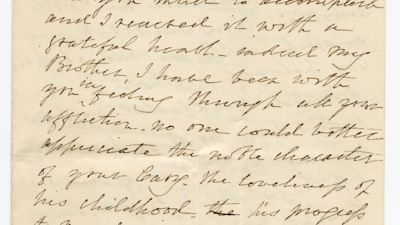 and I reached it with a
grateful heart - indeed my
Brother, I have been with
you in feeling through all your
affliction - no one could better
appreciate the noble character
of your Cary - the loveliness of
his childhood - the his progress